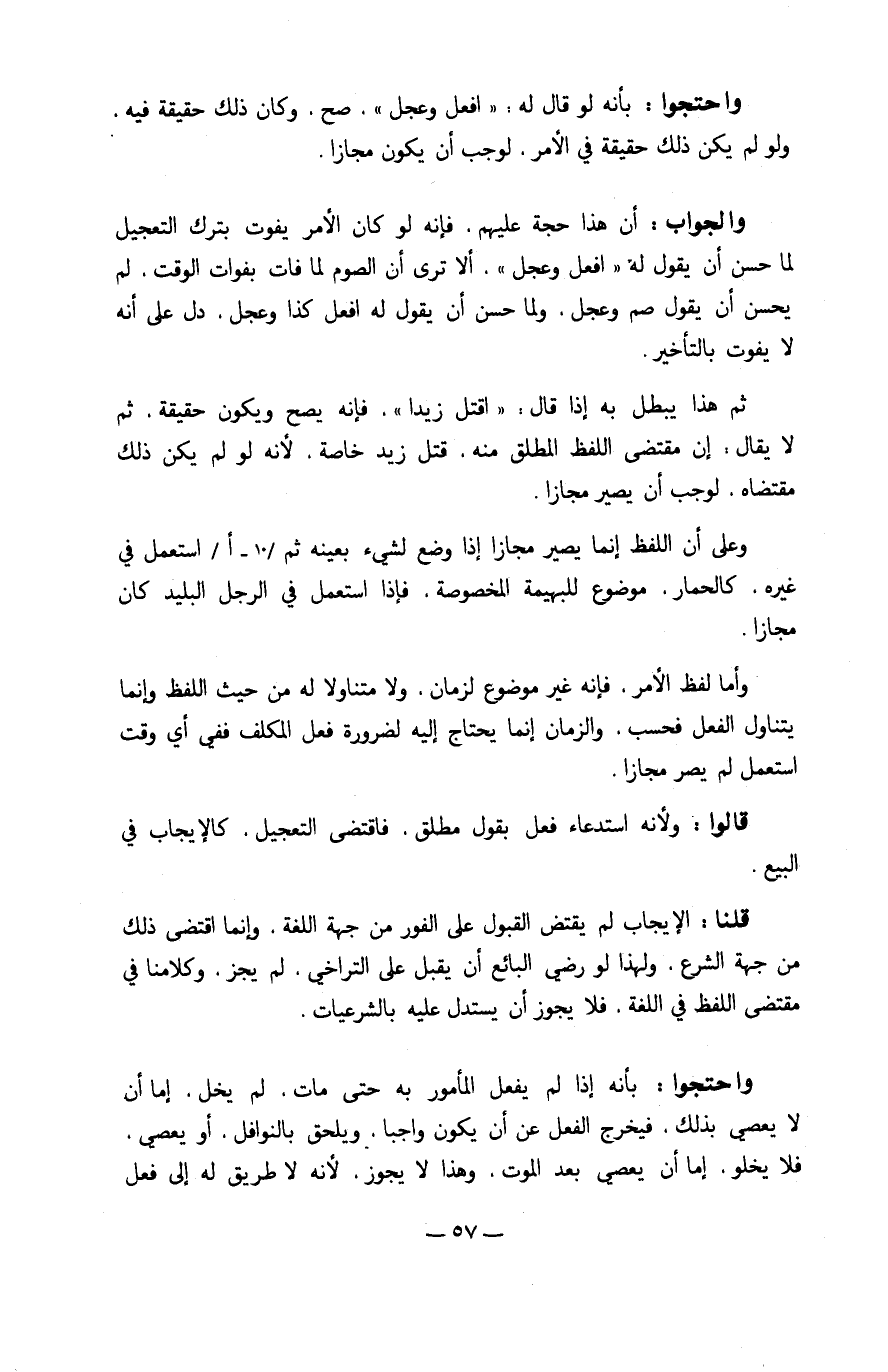 واحتجوا : بأنه لو قال له : « افعل وعجل » ، صح ، وكان ذلك حقيقة فيه ،
ولو لم يكن ذلك حقيقة في الأمر ، لوجب أن يكون مجازا .
والجواب : أن هذا حجة عليهم ، فإنه لو كان الأمر يفوت بترك التعجيل
لما حسن أن يقول له « افعل وعجل » ، ألا ترى أن الصوم لما فات بفوات الوقت ، لم
يحسن أن يقول صم وعجل ، ولما حسن أن يقول له افعل كذا وعجل ، دل على أنه
لا يفوت بالتأخير .
ثم هذا يبطل به إذا قال : « اقتل زيدا » ، فإنه يصح ويكون حقيقة ، ثم
لا يقال : إن مقتضى اللفظ المطلق منه ، قتل زيد خاصة ، لأنه لو لم يكن ذلك
مقتضاه ، لوجب أن يصير مجازا .
وعلى أن اللفظ إنما يصير مجازا إذا وضع لشيء بعينه ثم /١٠ ـ أ / استعمل في
غيره ، كالحمار ، موضوع للبهيمة المخصوصة ، فإذا استعمل في الرجل البليد كان
مجازا .
وأما لفظ الأمر ، فإنه غير موضوع لزمان ، ولا متناولا له من حيث اللفظ وإنما
يتناول الفعل فحسب ، والزمان إنما يحتاج إليه لضرورة فعل المكلف ففي أي وقت
استعمل لم يصر مجازا .
قالوا : ولأنه استدعاء فعل بقول مطلق ، فاقتضى التعجيل ، كالإيجاب في
البيع .
قلنا : الإيجاب لم يقتض القبول على الفور من جهة اللغة ، وإنما اقتضى ذلك
من جهة الشرع ، ولهذا لو رضي البائع أن يقبل على التراخي ، لم يجز ، وكلامنا في
مقتضى اللفظ في اللغة ، فلا يجوز أن يستدل عليه بالشرعيات .
واحتجوا : بأنه إذا لم يفعل المأمور به حتى مات ، لم يخل ، إما أن
لا يعصي بذلك ، فيخرج الفعل عن أن يكون واجبا ، ويلحق بالنوافل ، أو يعصي ،
فلا يخلو ، إما أن يعصي بعد الموت ، وهذا لا يجوز ، لأنه لا طريق له إلى فعل
— ٥٧ —